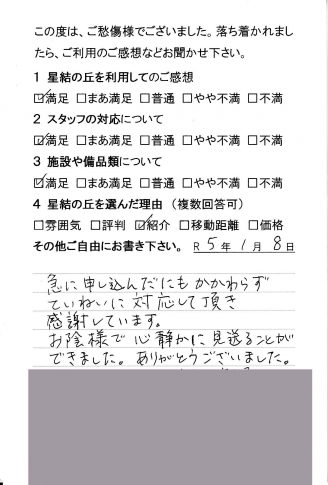 この度は、ご愁傷様でございました。落ち着かれまし
たら、ご利用のご感想などお聞かせ下さい。
1 星結の丘を利用してのご感想
☑満足 □まあ満足 □普通 □やや不満 □不満
2 スタッフの対応について
☑満足 □まあ満足 □普通 □やや不満 □不満
3 施設や備品類について
☑満足 □まあ満足 □普通 □やや不満 □不満
4 星結の丘を選んだ理由（複数回答可）
□雰囲気 □評判 ☑紹介 □移動距離 □価格
その他ご自由にお書き下さい。 R 5年 1月 8日
急に申し込んだにもかかわらず
ていねいに対応して頂き
感謝しています。
お陰様で心静かに見送ることが
できました。ありがとうございました。